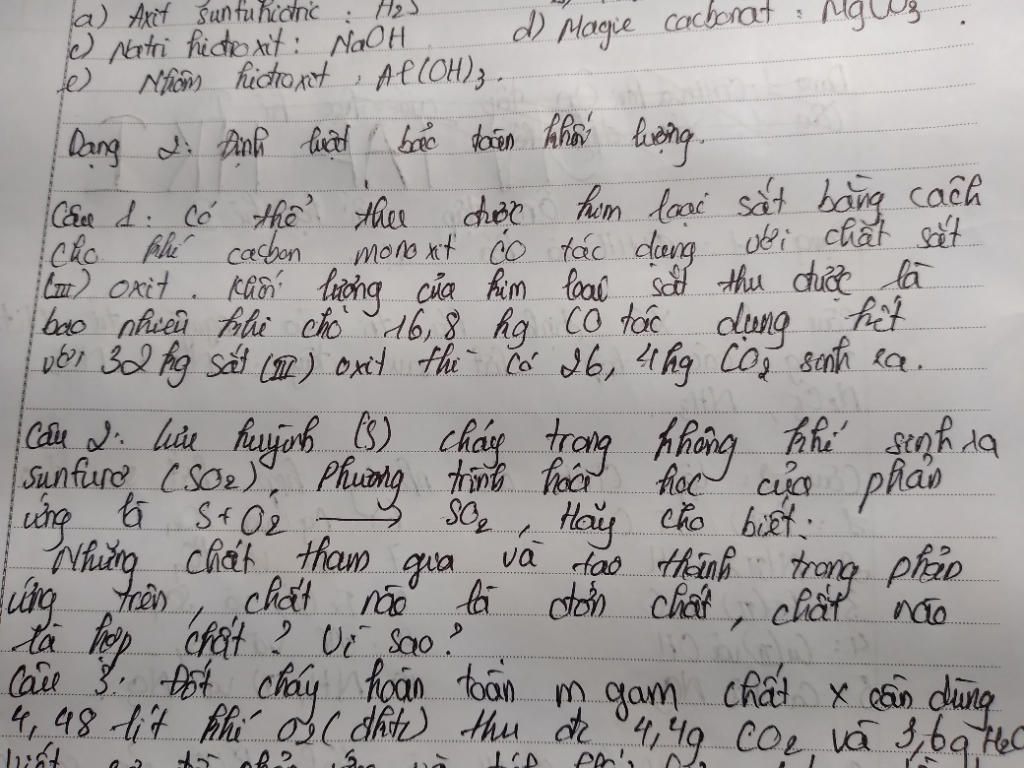 a) Axit sunfuhidric : H2S
c) Natri hidroxit : NaOH d) Magie cacbonat : MgCO3.
e) Nhôm hidroxit : Al(OH)3.
Dạng 2: Định luật bảo toàn khối lượng.
Câu 1: Có thể thu được kim loại sắt bằng cách
cho khí cacbon monoxit CO tác dụng với chất sắt
(III) oxit. Khối lượng của kim loại sắt thu được là
bao nhiêu khi cho 16,8 kg CO tác dụng hết
với 32 kg sắt (III) oxit thì có 26,4 kg CO2 sinh ra.
Câu 2: Lưu huỳnh (S) cháy trong không khí sinh ra
sunfurơ (SO2), Phương trình hóa học của phản
ứng là S + O2 → SO2, Hãy cho biết:
Những chất tham gia và tạo thành trong phản
ứng trên, chất nào là đơn chất, chất nào
là hợp chất? Vì sao?
Câu 3: Đốt cháy hoàn toàn m gam chất x cần dùng
4,48 lít khí O2 (đktc) thu đc 4,4g CO2 và 3,6g H2O